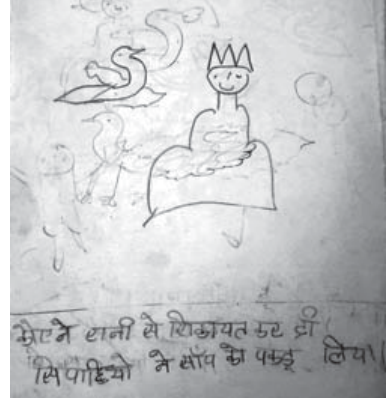 कौएने रानी से शिकायत कर दी
सिपाहियो ने साँप को पकड़ लिया।